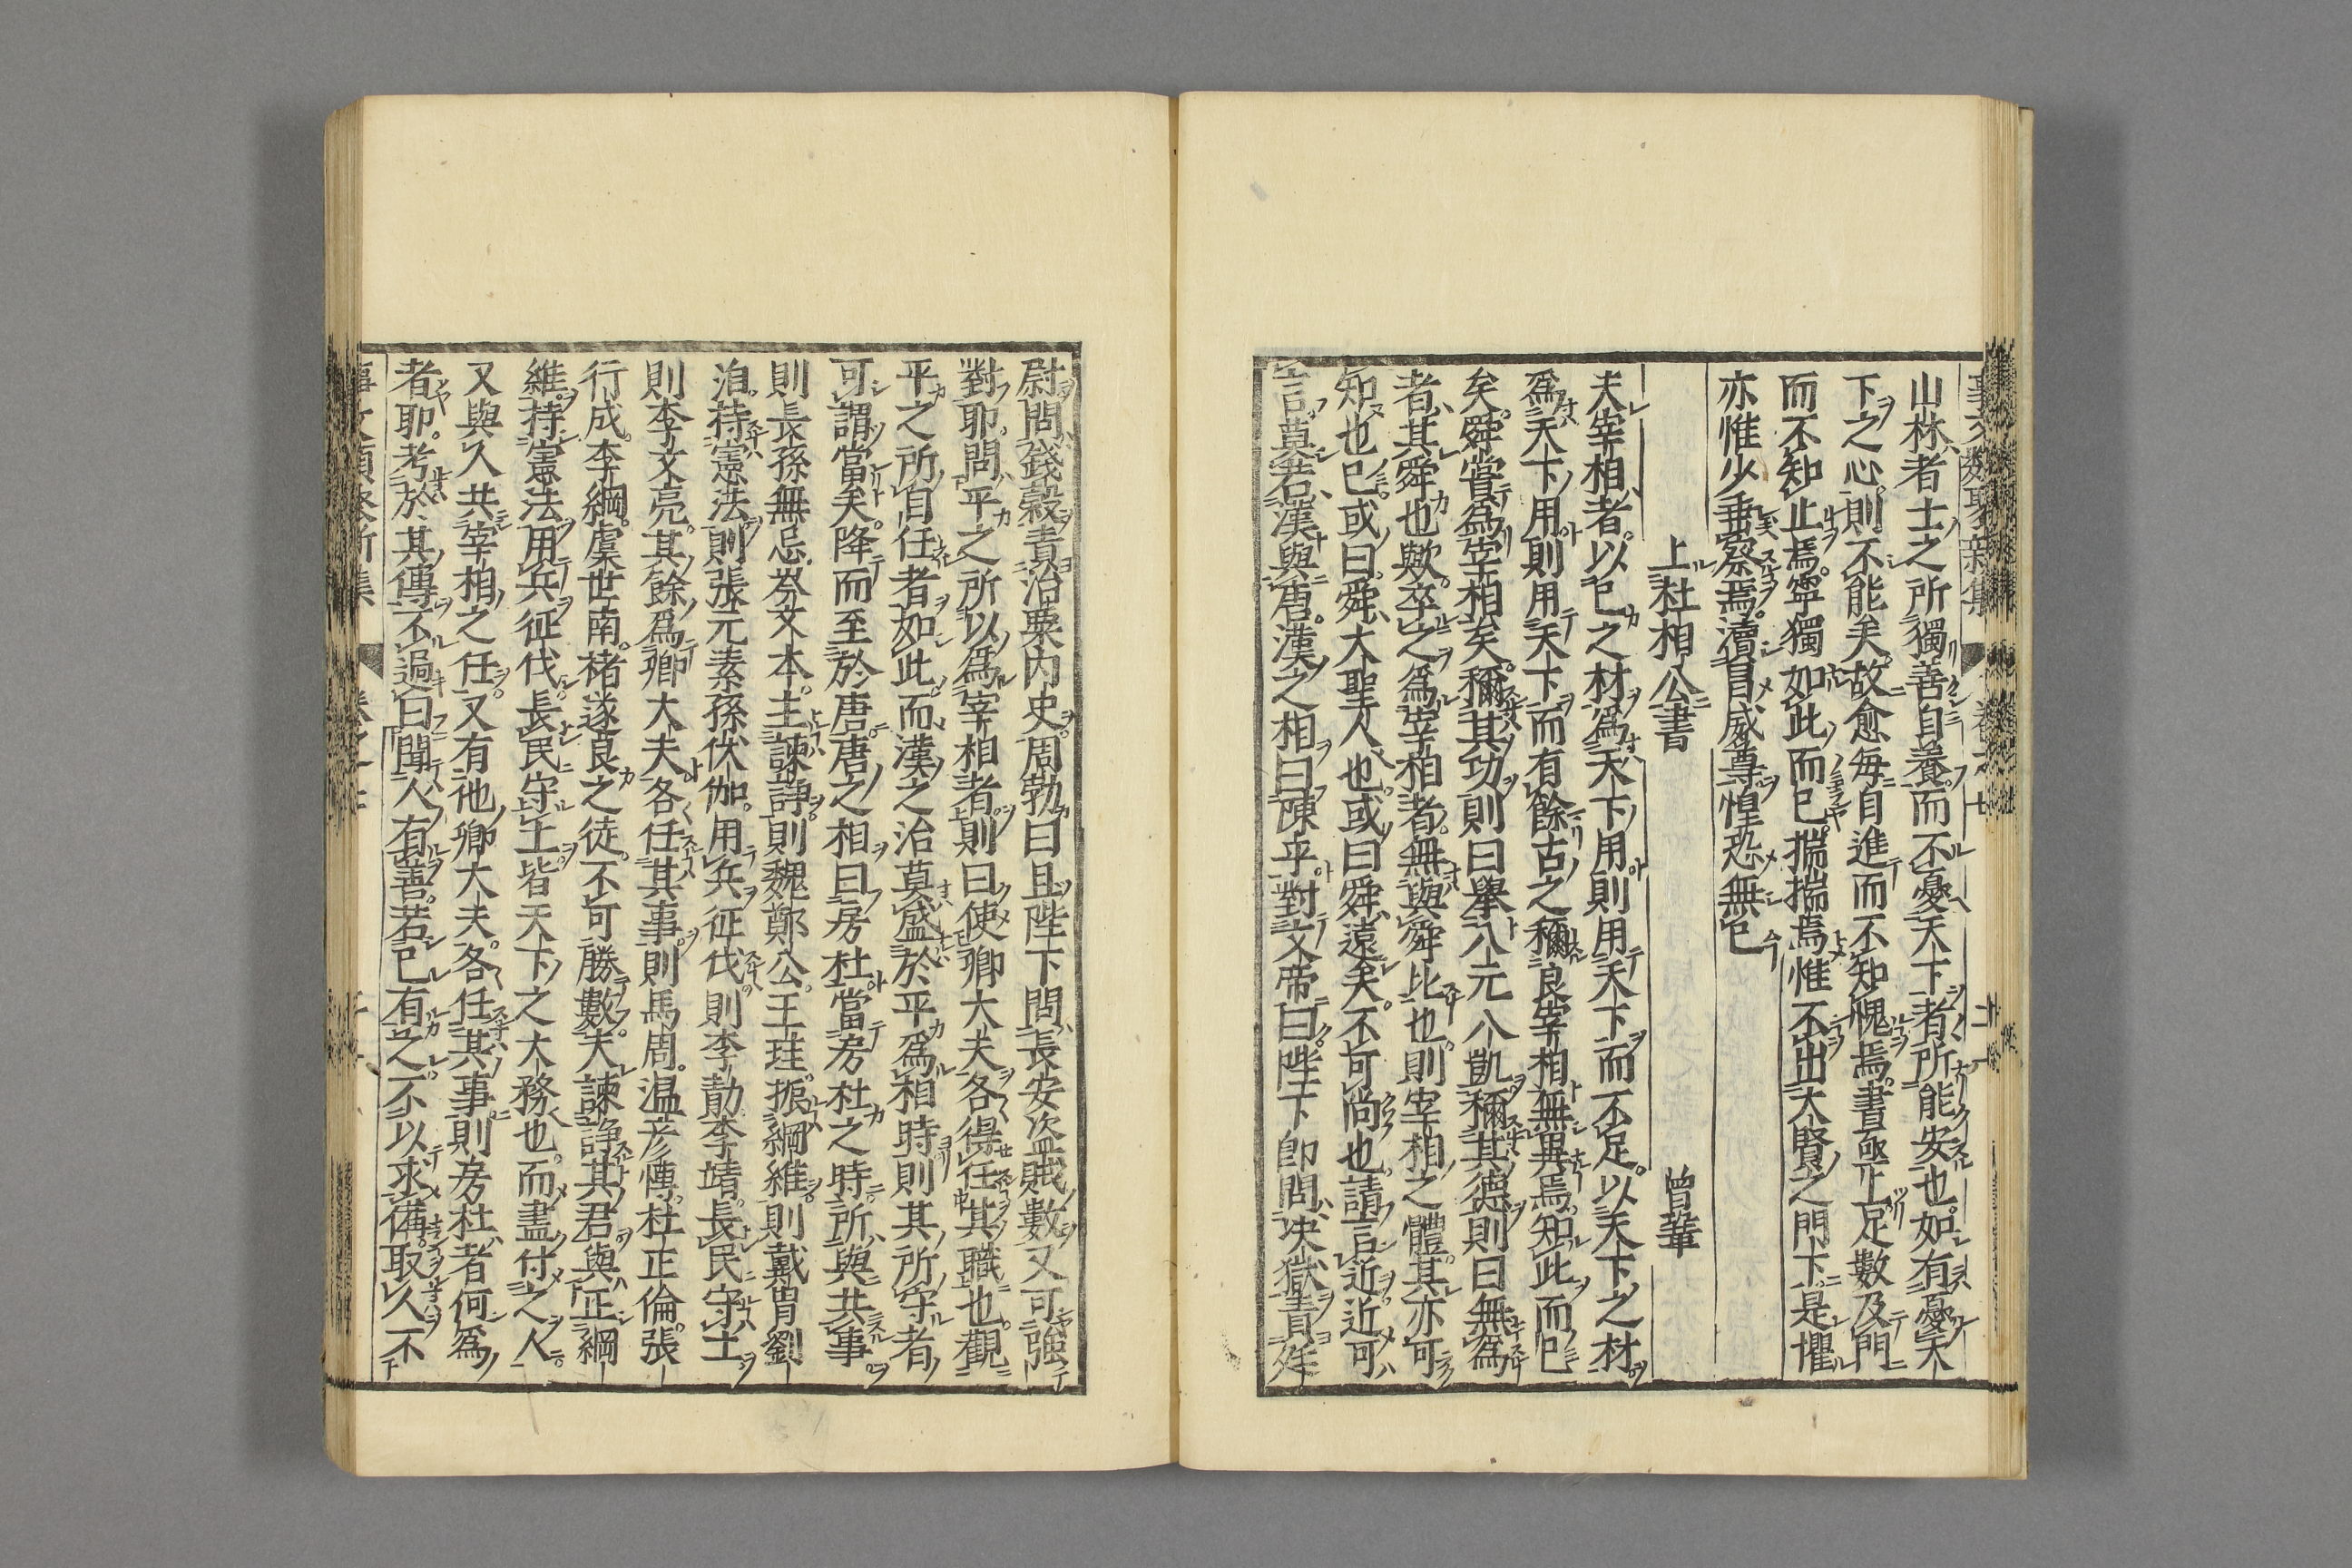 山林者士之所獨善自養而不憂天下者所能安也如有憂天
下之心則不能矣故愈毎自進而不知愧焉書亟上足數及門
而不知止焉寧獨如此而已惴惴焉惟不出大賢之門下是懼
亦惟少垂察焉瀆冒威尊惶恐無已
上杜相公書 曾鞏
夫宰相者以已之材爲天下用則用天下而不足以天下之材
爲天下用則用天下而有餘古之稱良宰相無異焉知此而已
矣舜嘗爲宰相矣稱其功則曰擧八元八凱稱其德則曰無爲
者其舜也歟卒之爲宰相者無與舜比也則宰相之體其亦可
知也已或曰舜大聖人也或曰舜遠矣不可尚也請言近近可
言莫若漢與唐漢之相曰陳平對文帝曰陛下卽問決獄責廷
尉問錢穀責治粟內史周勃曰且陛下問長安盜賊數又可強
對耶問平之所以爲宰相者則曰使卿大夫各得任其職也觀
平之所自任者如此而漢之治莫盛於平爲相時則其所守者
可謂當矣降而至於唐唐之相曰房杜當房杜之時所與共事
則長孫無忌岑文本主諫諍則魏鄭公王珪振綱維則戴胄劉
洎持憲法則張元素孫伏伽用兵征伐則李勣李靖長民守土
則李文亮其餘爲卿大夫各任其事則馬周温彦愽杜正倫張
行成李綱虞世南楮遂良之徒不可勝數夫諫諍其君與正綱
維持憲法用兵征伐長民守土皆天下之大務也而盡付之人
又與人共宰相之任又有他卿大夫各任其事則房杜者何爲
者耶考於其傳不過曰聞人有善若已有之不以求備取人不